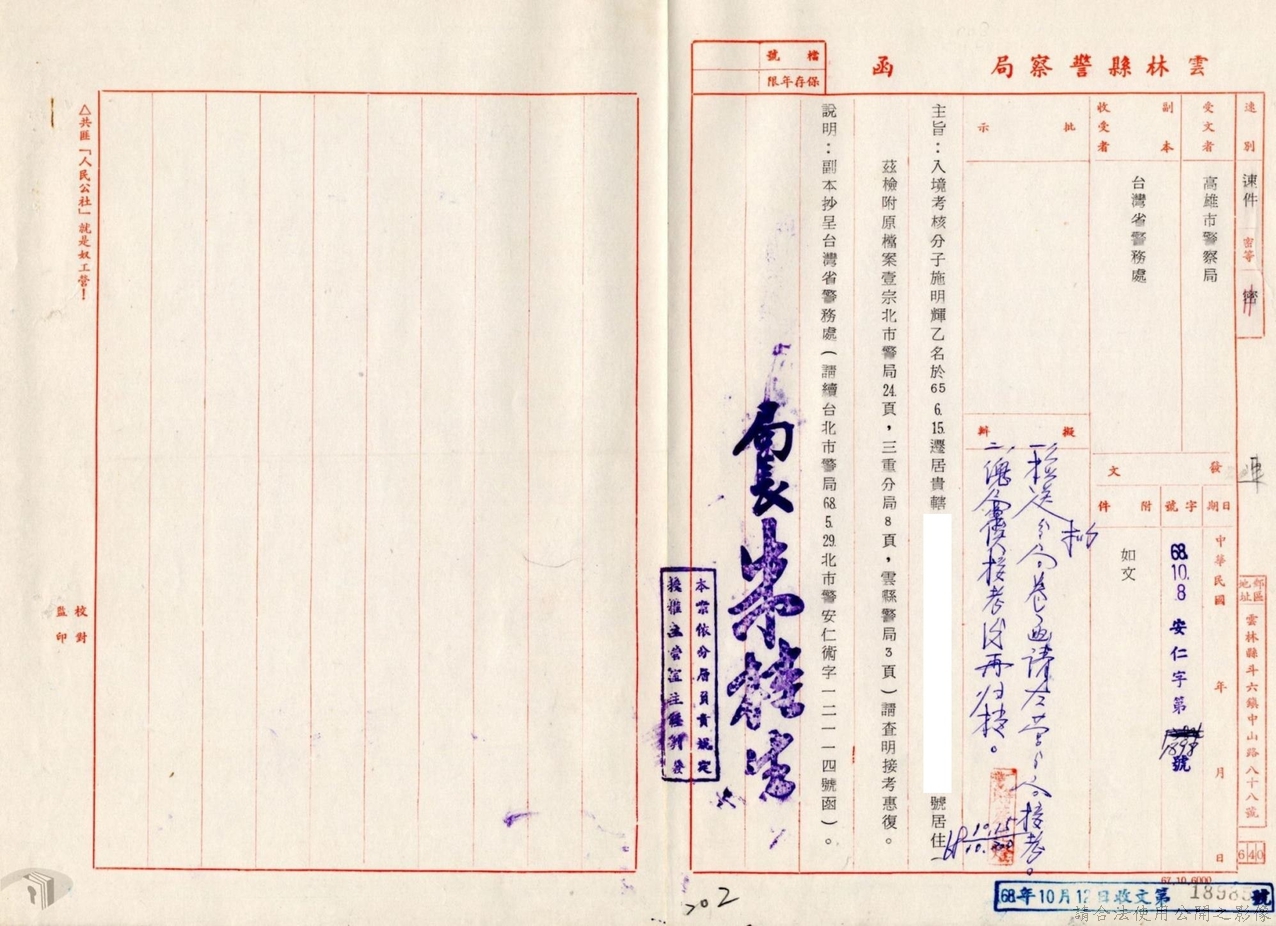 雲林縣警察局　函
檔號
保存年限
速別　速件
密等　密
受文者　高雄市警察局
副本收受者　台灣省警務處
批示
擬辦
發文
日期　中華民國　年　月　日
68.10.8
字號　安仁字第1898號
附件　如文
郵區地址　雲林縣斗六鎮中山路八十八號
640
主旨：入境考核分子施明輝乙名於65.6.15.遷居貴轄　號居住，
茲檢附原檔案壹宗北市警局24頁，三重分局8頁，雲縣警局3頁）請查明接考惠復。
說明：副本抄呈台灣省警務處（請續台北市警局68.5.29.北市警安仁衛字一二一一四號函）。
擬
再歸檔。
68
局長朱
本案依分層負責規定
授權主管
68年10月12日收文第1898號
67.10.6000
202
△共匪「人民公社」就是奴工營！
校對
監印
請合法使用公開之影像